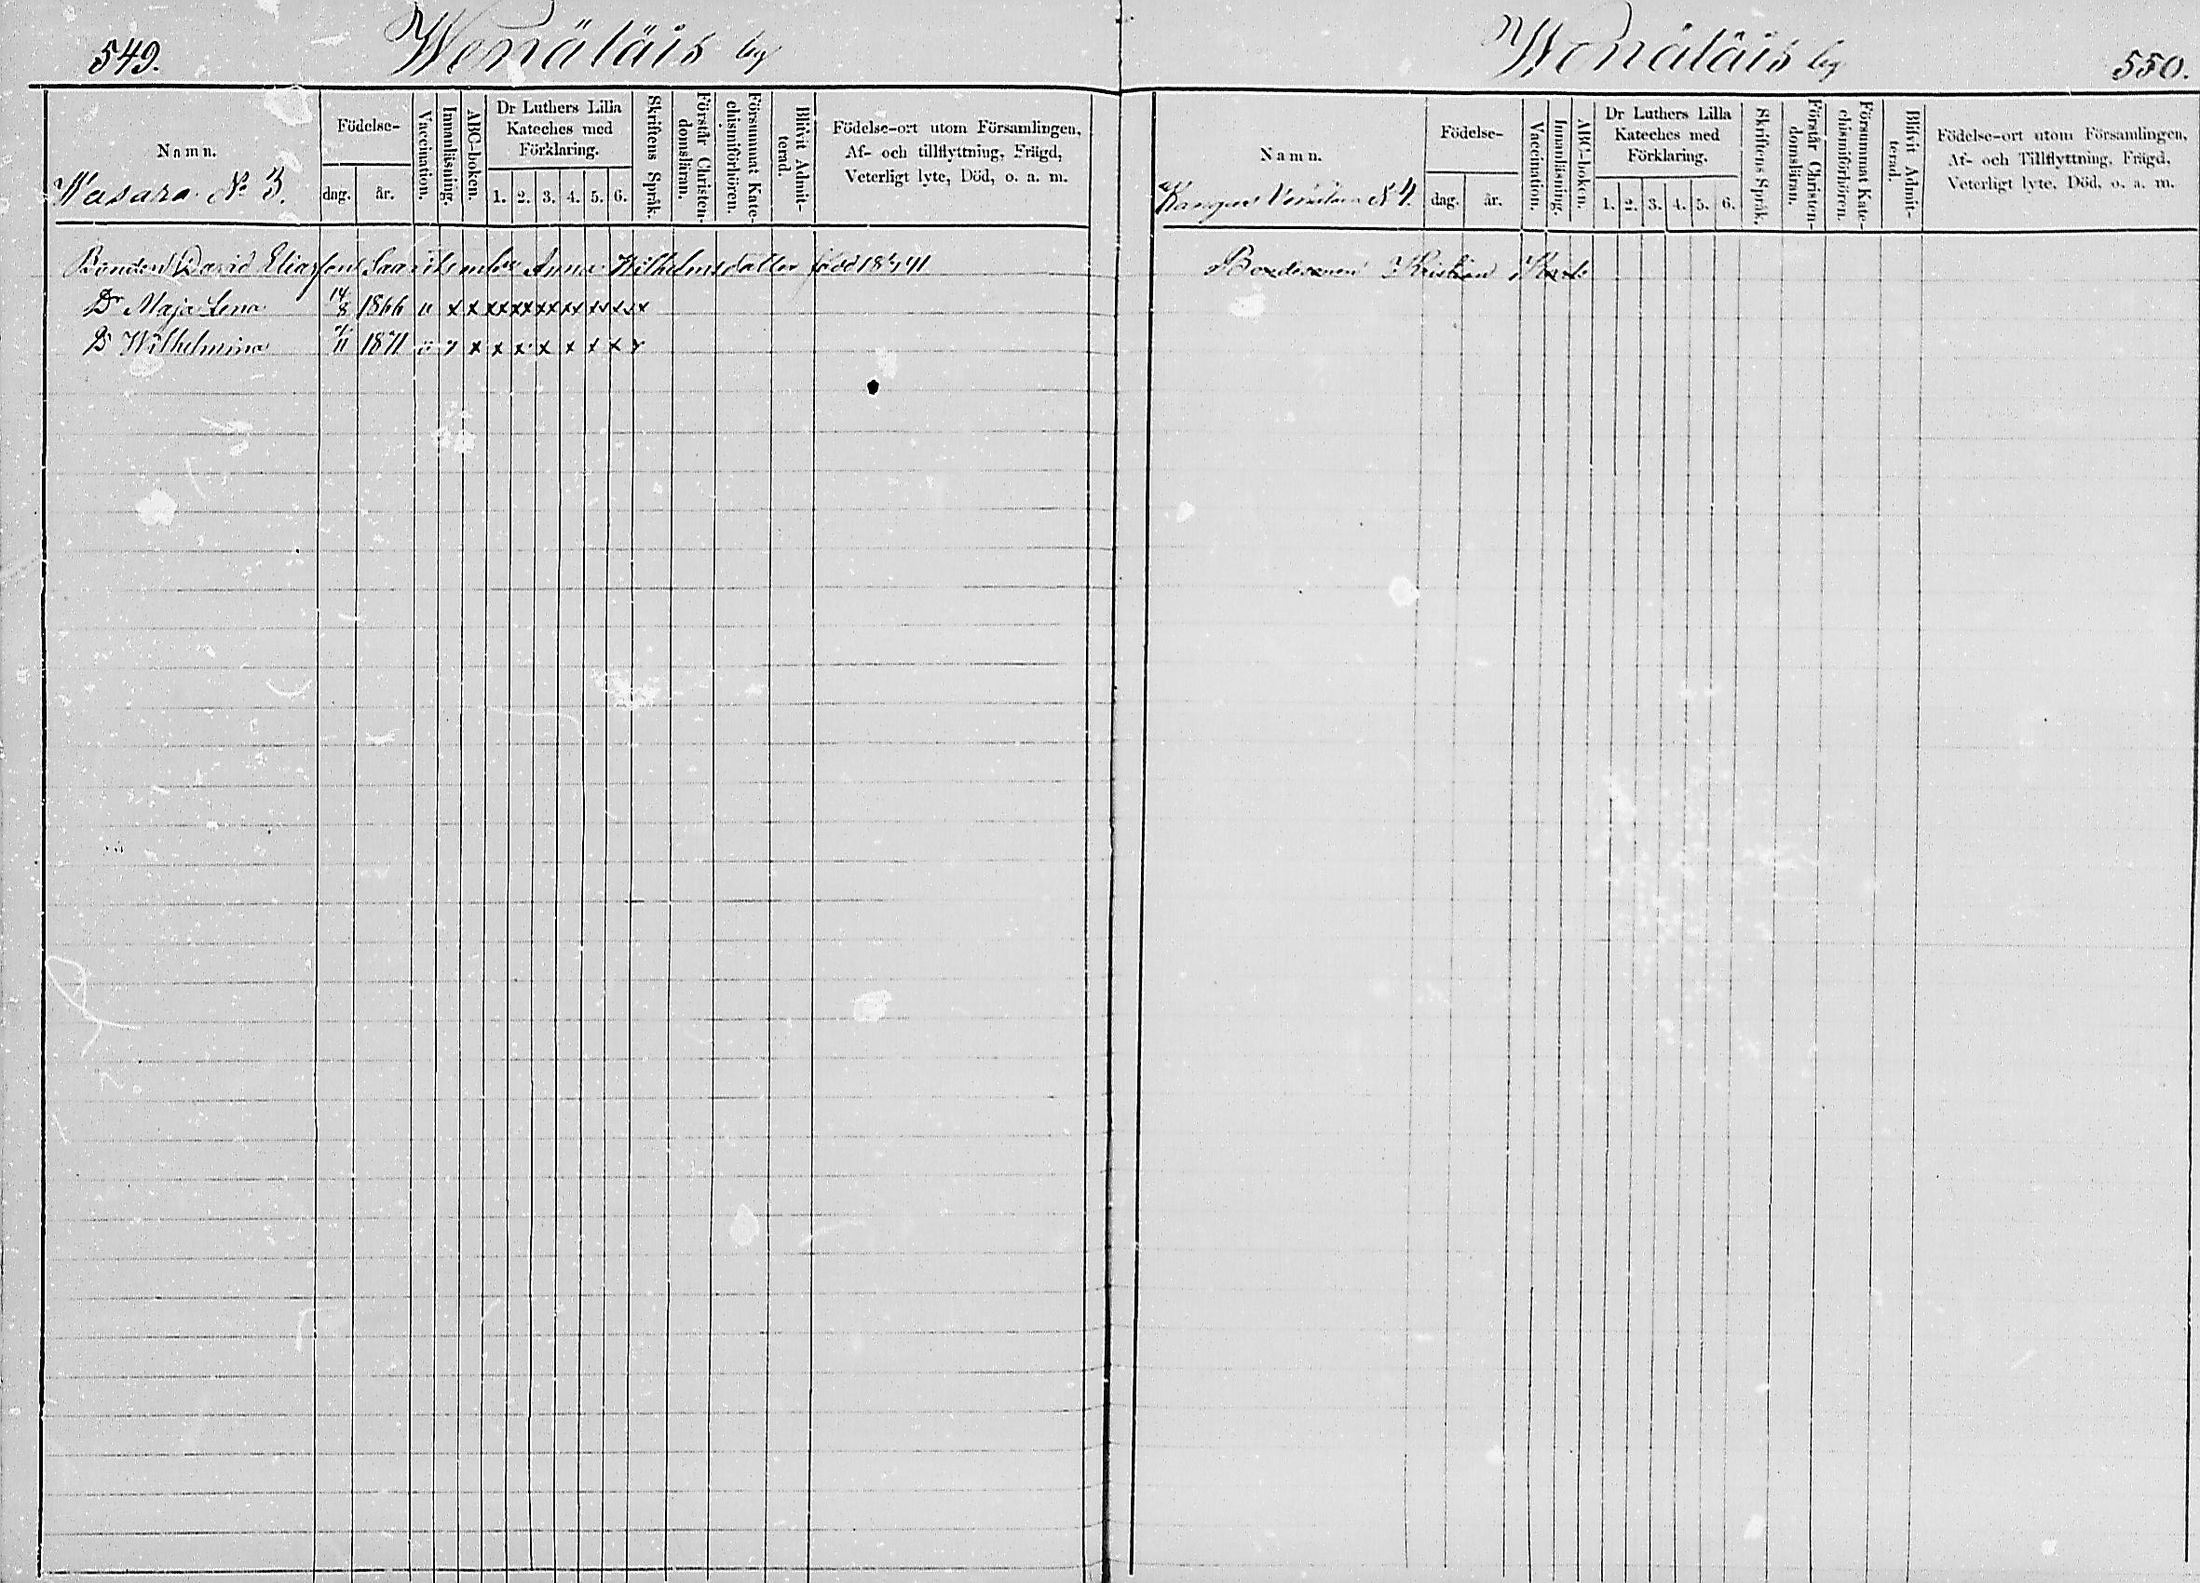 549.
Wenäläis by
Namn.
Wasara No 3.
Födelse-
dag.
år.
Vaccination.
Innanläsning.
ABC-boken.
Dr Luthers Lilla
Kateches med
Förklaring.
1. 2. 3. 4. 5. 6.
Skriftens Språk.
Förstår Christen-
domsläran.
Försummat Kate-
chismiförhören.
Blifvit Admit-
terad.
Födelse-ort utom Församlingen,
Af- och tillflyttning, Frägd,
Veterligt lyte, Död, o. a. m.
Bonden David Eliasson Anna Wilhelmsdotter född
Dr Maja Lena 14/8 1866 u x x xx xx xx xx xx xx x
Dr Wilhelmina 1871 x x x x x x x x
Wenäläis by
550.
Namn.
Kangas No 4.
Födelse-
dag.
år.
Vaccination.
Innanläsning.
ABC-boken.
Dr Luthers Lilla
Kateches med
Förklaring.
1. 2. 3. 4. 5. 6.
Skriftens Språk.
Förstår Christen-
domsläran.
Försummat Kate-
chismiförhören.
Blifvit Admit-
terad.
Födelse-ort utom Församlingen,
Af- och Tillflyttning, Frägd,
Veterligt lyte, Död, o. a. m.
Kristian